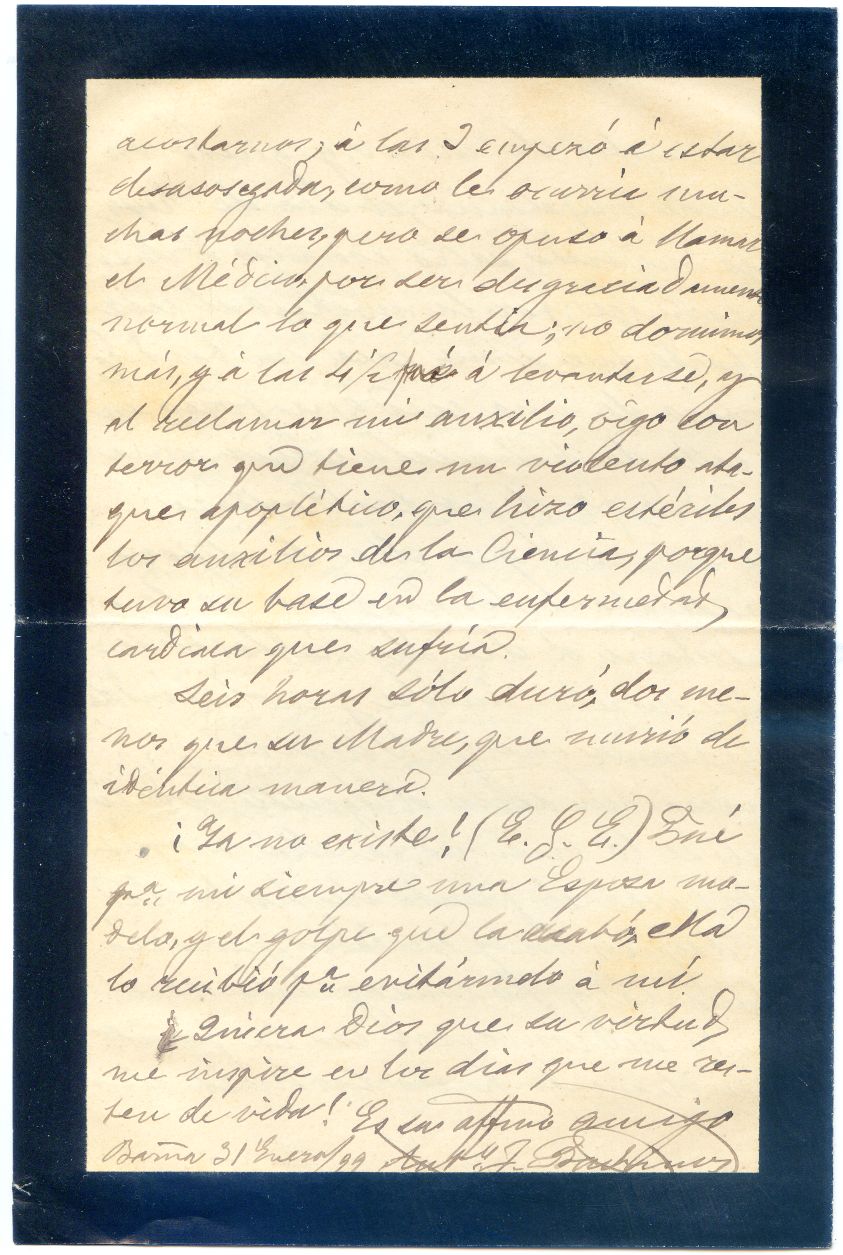 acostarnos; á las 2 empezó á estar
desasosegada, como le ocurria mu-
chas noches, pero se opuso á llamar
el Médico, por ser desgraciadamente
normal lo que sentia; no dormimos
más, y á las 4 1/2 fué á levantarse, y
al reclamar mi auxilio, oigo con
terror que tiene un violento ata-
que apoplético, que hizo estériles
los auxilios de la Ciencia, porque
tuvo su base en la enfermedad
cardiaca que sufría.
Seis horas sólo duró, dos me-
nos que su Madre, que murió de
idéntica manera.
¡Ya no existe! (E. G. E.) Fué
pª mi siempre una Esposa mo-
delo, y el golpe que la acabó, Ella
lo recibió pª evitármelo á mí
¡Quiera Dios que su virtud,
me inspire en los dias que me res-
ten de vida! Es su affmo amigo
Barna 31 Enero/99 Antº J.